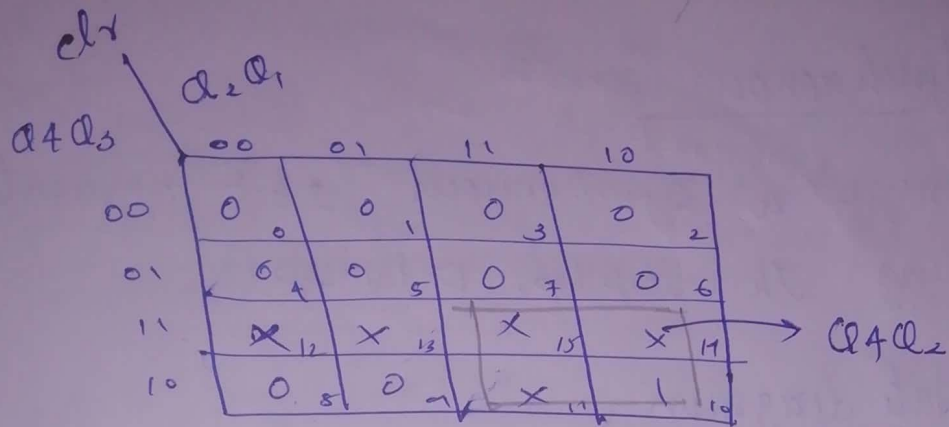 clr
Q2Q1
Q4Q3
00 01 11 10
00 0 0 0 1 0 3 0 2
01 0 4 0 5 0 7 0 6
11 X 12 X 13 X 15 X 14 Q4Q2
10 0 8 0 9 X 11 1 10